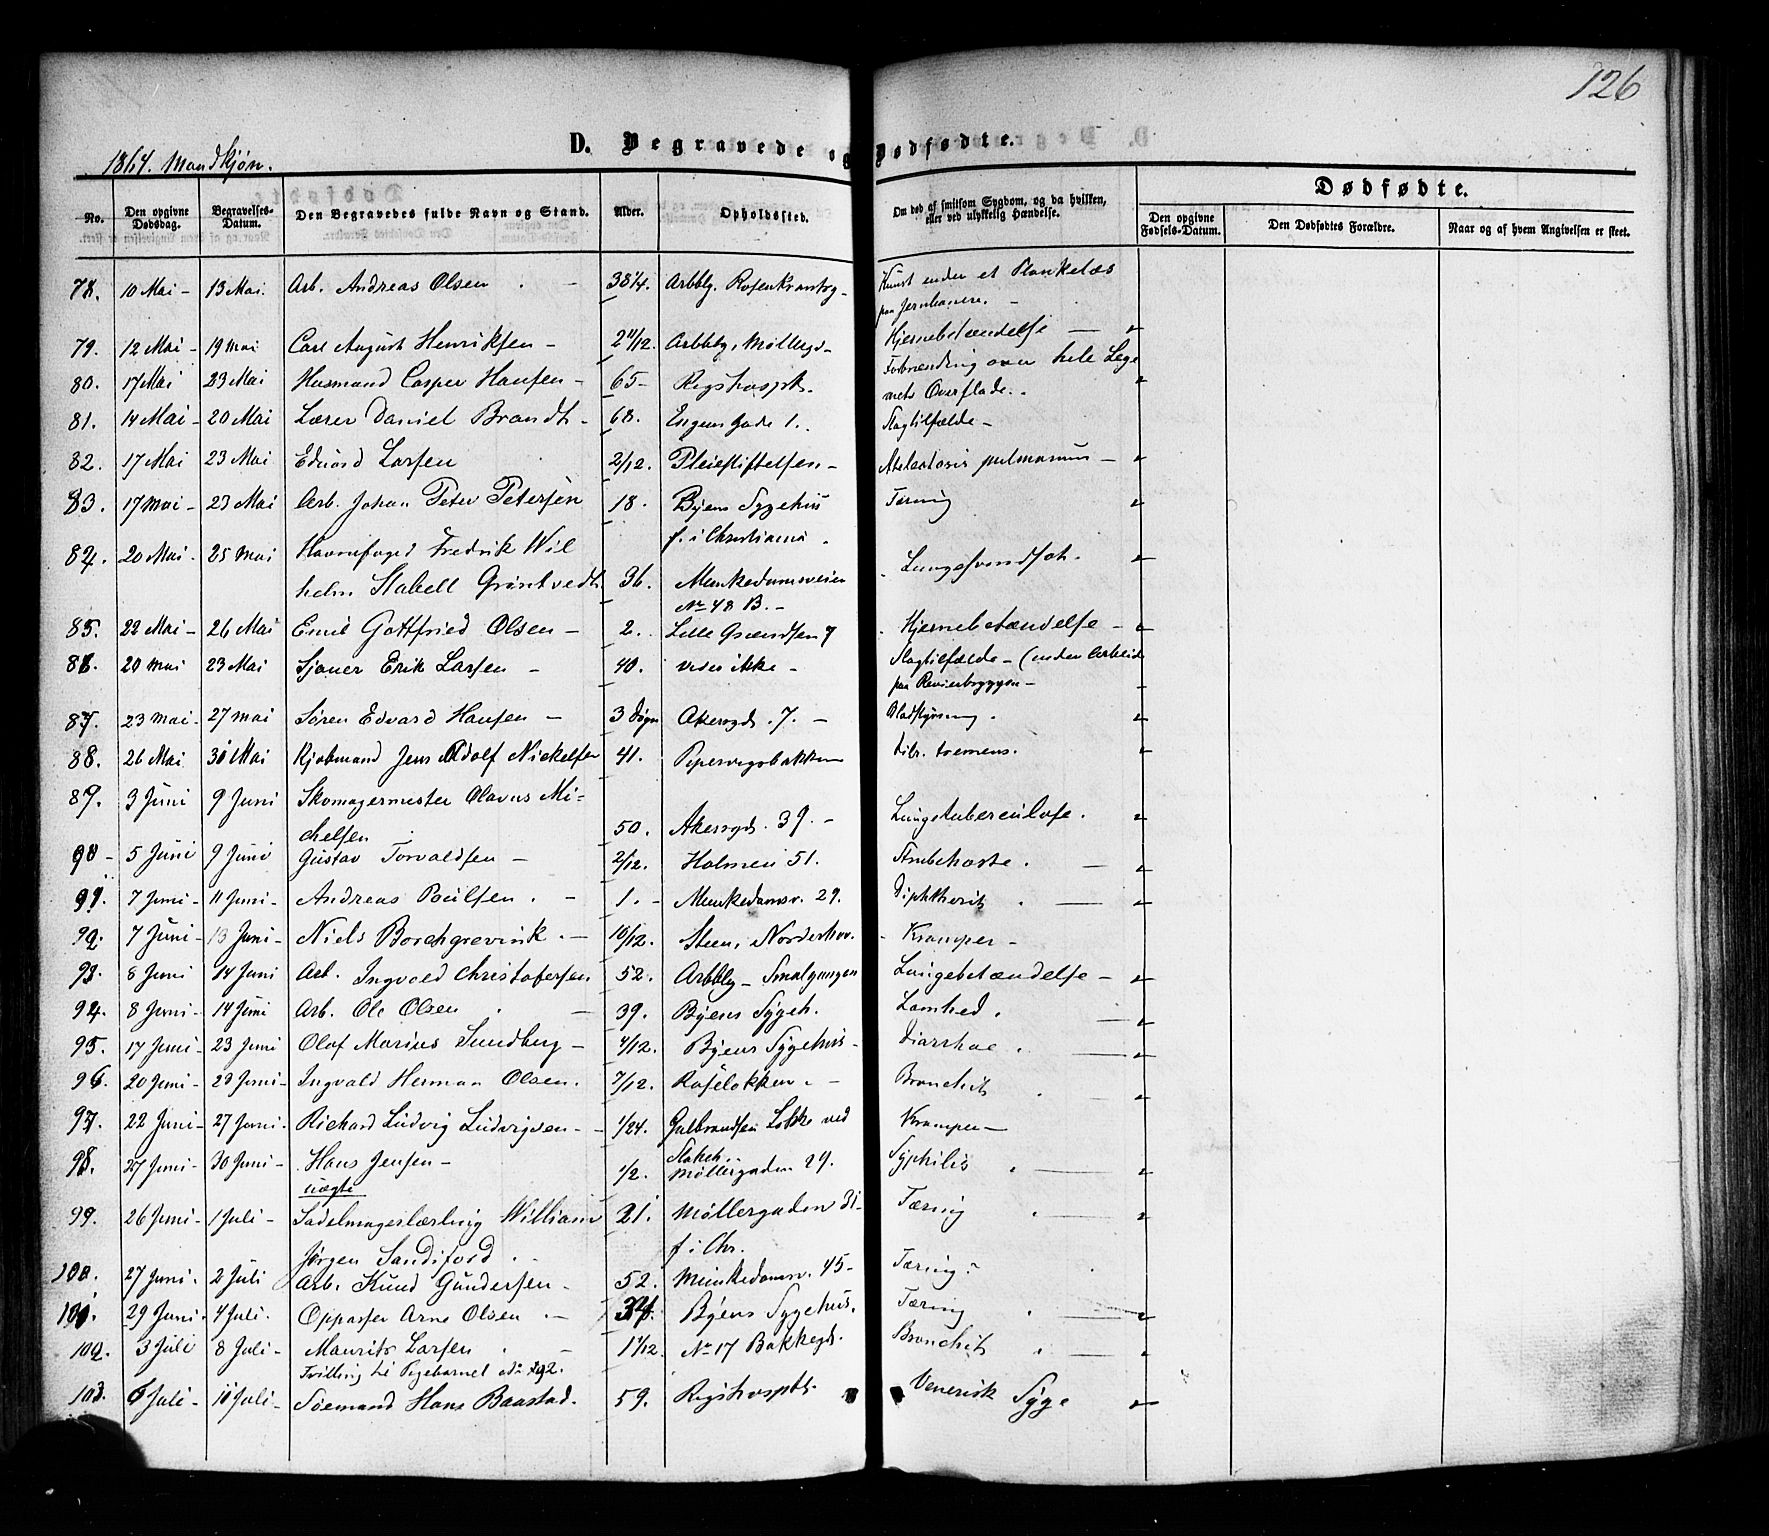 126
D. Begravede og Dødfødte.
1864. Mandkjøn.
No. Den opgivne Dødsdag. Begravelses-Datum. Den Begravedes fulde Navn og Stand. Alder. Opholdssted. Om død af smitsom Sygdom, og da hvilken, eller ved ulykkelig Hændelse. Dødfødte.
Den opgivne Fødsels-Datum. Den Dødfødtes Forældre. Naar og af hvem Angivelsen er skeet.
78. 10 Mai - 13 Mai. Arb. Andreas Olsen - 38 1/4. Arbblg. Rosenkrantzg - Knust under et Plankelæs
paa Jernbanen. -
79. 12 Mai - 19 Mai Carl August Henriksen - 2 11/12. Arbblg. Møllerg - Hjernebetændelse -
80. 17 Mai 23 Mai Husmand Casper Hansen - 65 - Rigshospt. Forbrænding over hele Lege
mets Overflade.
81. 14 Mai - 20 Mai Lærer Daniel Brandt - 68. Engens Gade 1. Slagtilfælde -
82. 17 Mai 23 Mai Edvard Larsen 2/12. Pleiestiftelsen - Atelectasis pulmonum -
83. 17 Mai - 23 Mai Arb. Johan Peter Petersen 18. Byens Sygehus Tæring
f. i Christiania.
84. 20 Mai - 25 Mai Havnefoged Fredrik Wil
helm Stabell Grøntvedt 36. Munkedamsveien Lungesvindsot.
No 48 B. -
85. 22 Mai - 26 Mai Emil Gottfried Olsen - 2. Lille Grændsen 7 Hjernebetændelse -
86. 20 Mai 23 Mai Sjouer Erik Larsen - 40. vides ikke - Slagtilfælde - (under Arbeide
paa Revierbryggen -
87. 23 Mai - 27 Mai Søren Edvard Hansen - 3 Døgn Akersgd. 7. - Blodstyrtning.
88. 26 Mai 30 Mai Kjøbmand Jens Adolf Nickelsen 41. Pipervigsbakken Dilr. tremens.
89. 3 Juni 9 Juni Skomagermester Olavus Mi-
chelsen 50. Akersgd. 39. - Lungetuberculose.
90 - 5 Juni 9 Juni Gustav Torvaldsen - 2/12. Holmen 51. Strubehoste. -
91. 7 Juni - 11 Juni - Andreas Poulsen. - 1. - Munkedamsv. 29. Diphtherit. -
92. 7 Juni - 13 Juni - Niels Borchgrevink. - 10/12. Steen, Norderhov. Kramper -
93. 8 Juni 14 Juni Arb. Ingvald Christofersen 52. Arbblg - Smalgangen Lungebetændelse -
94. 8 Juni - 14 Juni Arb. Ole Olsen - 39. Byens Sygeh. Lamhed. -
95. 17 Juni - 23 Juni Olaf Marius Sundberg - 4/12. Byens Sygehus - Diarrhae. -
96. 20 Juni - 23 Juni - Ingvald Herman Olsen. 7/12. Roseløkken. - Bronchit
97. 22 Juni - 27 Juni - Richard Ludvig Ludvigsen - 1/24. Gulbrandsen Løkke ved Kramper -
98. 27 Juni - 30 Juni - Hans Jensen - 1/2. Møllergaden 29. Syphilis. -
uægte
99. 26 Juni - 1 Juli - Sadelmagerlærling William 21. Møllergaden 31 - Tæring -
Jørgen Sandiford. - f. i Chr.
100. 27 Juni. 2 Juli Arb. Knud Gundersen - 52. Munkedamsv. 45 - Tæring.
101. 29 Juni - 4 Juli. Oppasser Arne Olsen. - 34. Byens Sygehus. Tæring -
102. 3 Juli 8 Juli - Maurits Larsen - 1 1/12. No 17 Bakkegd. Bronchit -
Tvilling til Pigebarnet
103. 6 Juli - 11 Juli - Sømand Hans Baastad. 59. Rigshosptt. Venerisk Syge